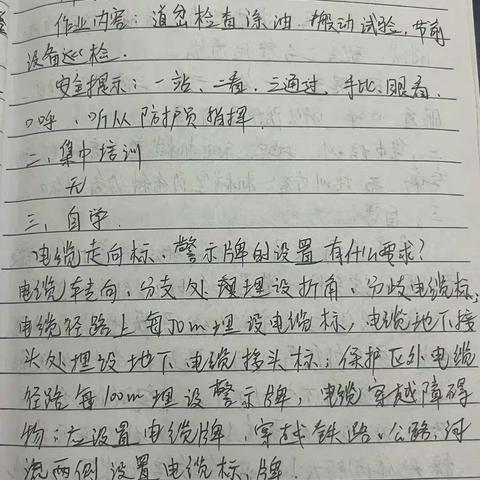 作业内容：道岔检查涂油．搬动试验，节前
设备巡检．
安全提示：一站、二看、三通过、手比、眼看、
口呼、听从防护员指挥．
二、集中培训
无
三、自学．
电缆走向标、警示牌的设置有什么要求？
电缆转向、分支处埋设折角、分歧电缆标，
电缆径路上每50m埋设电缆标，电缆地下接
头处埋设地下电缆接头标；保护区外电缆
径路每100m埋设警示牌，电缆穿越障碍
物；应设置电缆牌、穿越铁路、公路、河
流两侧设置电缆标、牌．